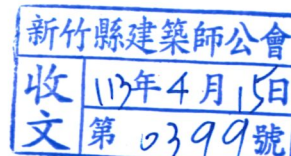 新竹縣建築師公會
收文
113年4月15日
第0399號